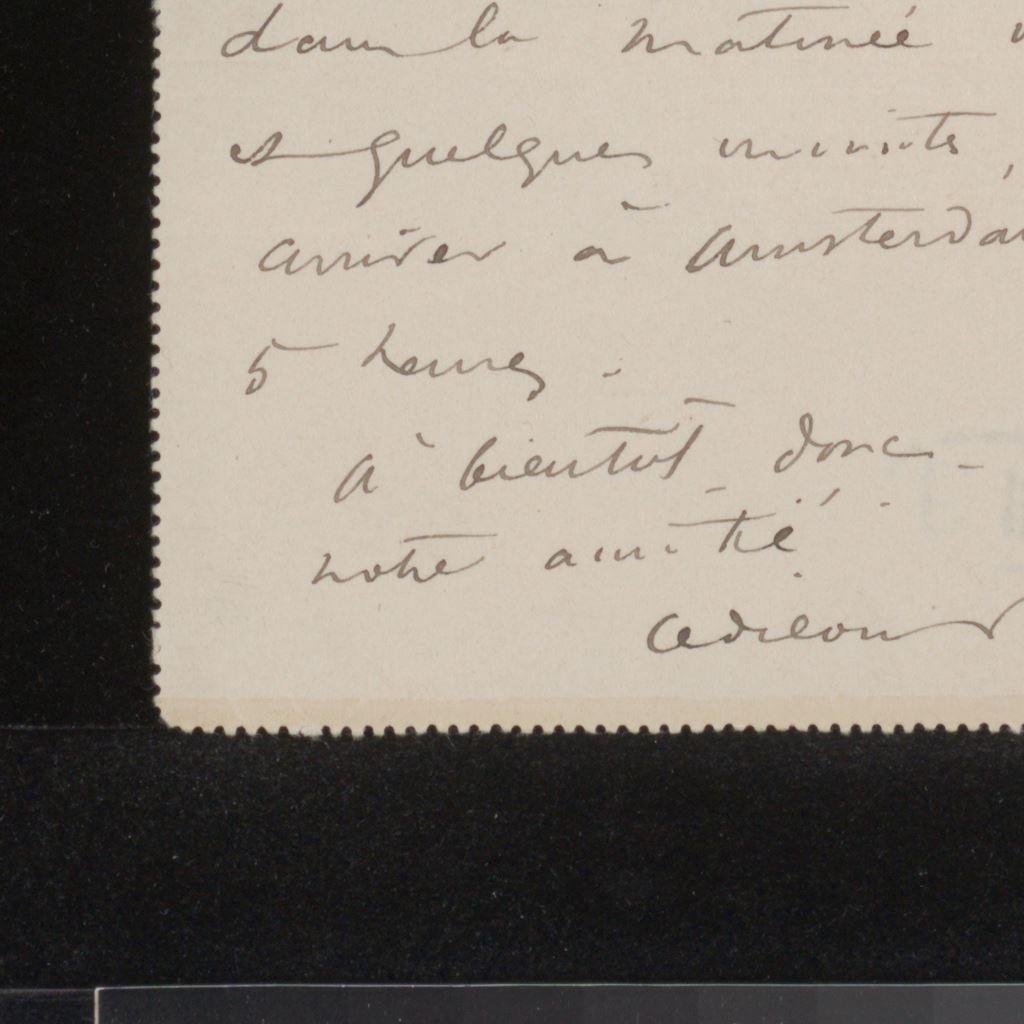 dans la matinée
et quelques minutes,
arriver à Amsterda
5 heures.
à bientôt donc
notre amitié
Odilon R